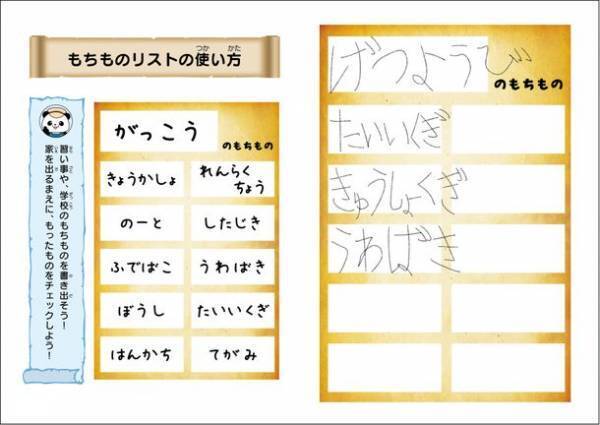 もちものリストの使い方
つか
かた
習い事や、学校のもちものを書き出そう！
家を出るまえに、もったものをチェックしよう！
がっこう
のもちもの
きょうかしょ
れんらくちょう
のーと
したじき
ふでばこ
うわばき
ぼうし
たいいくぎ
はんかち
てがみ
げつようび
のもちもの
たいいくぎ
きゅうしょくぎ
うわばき